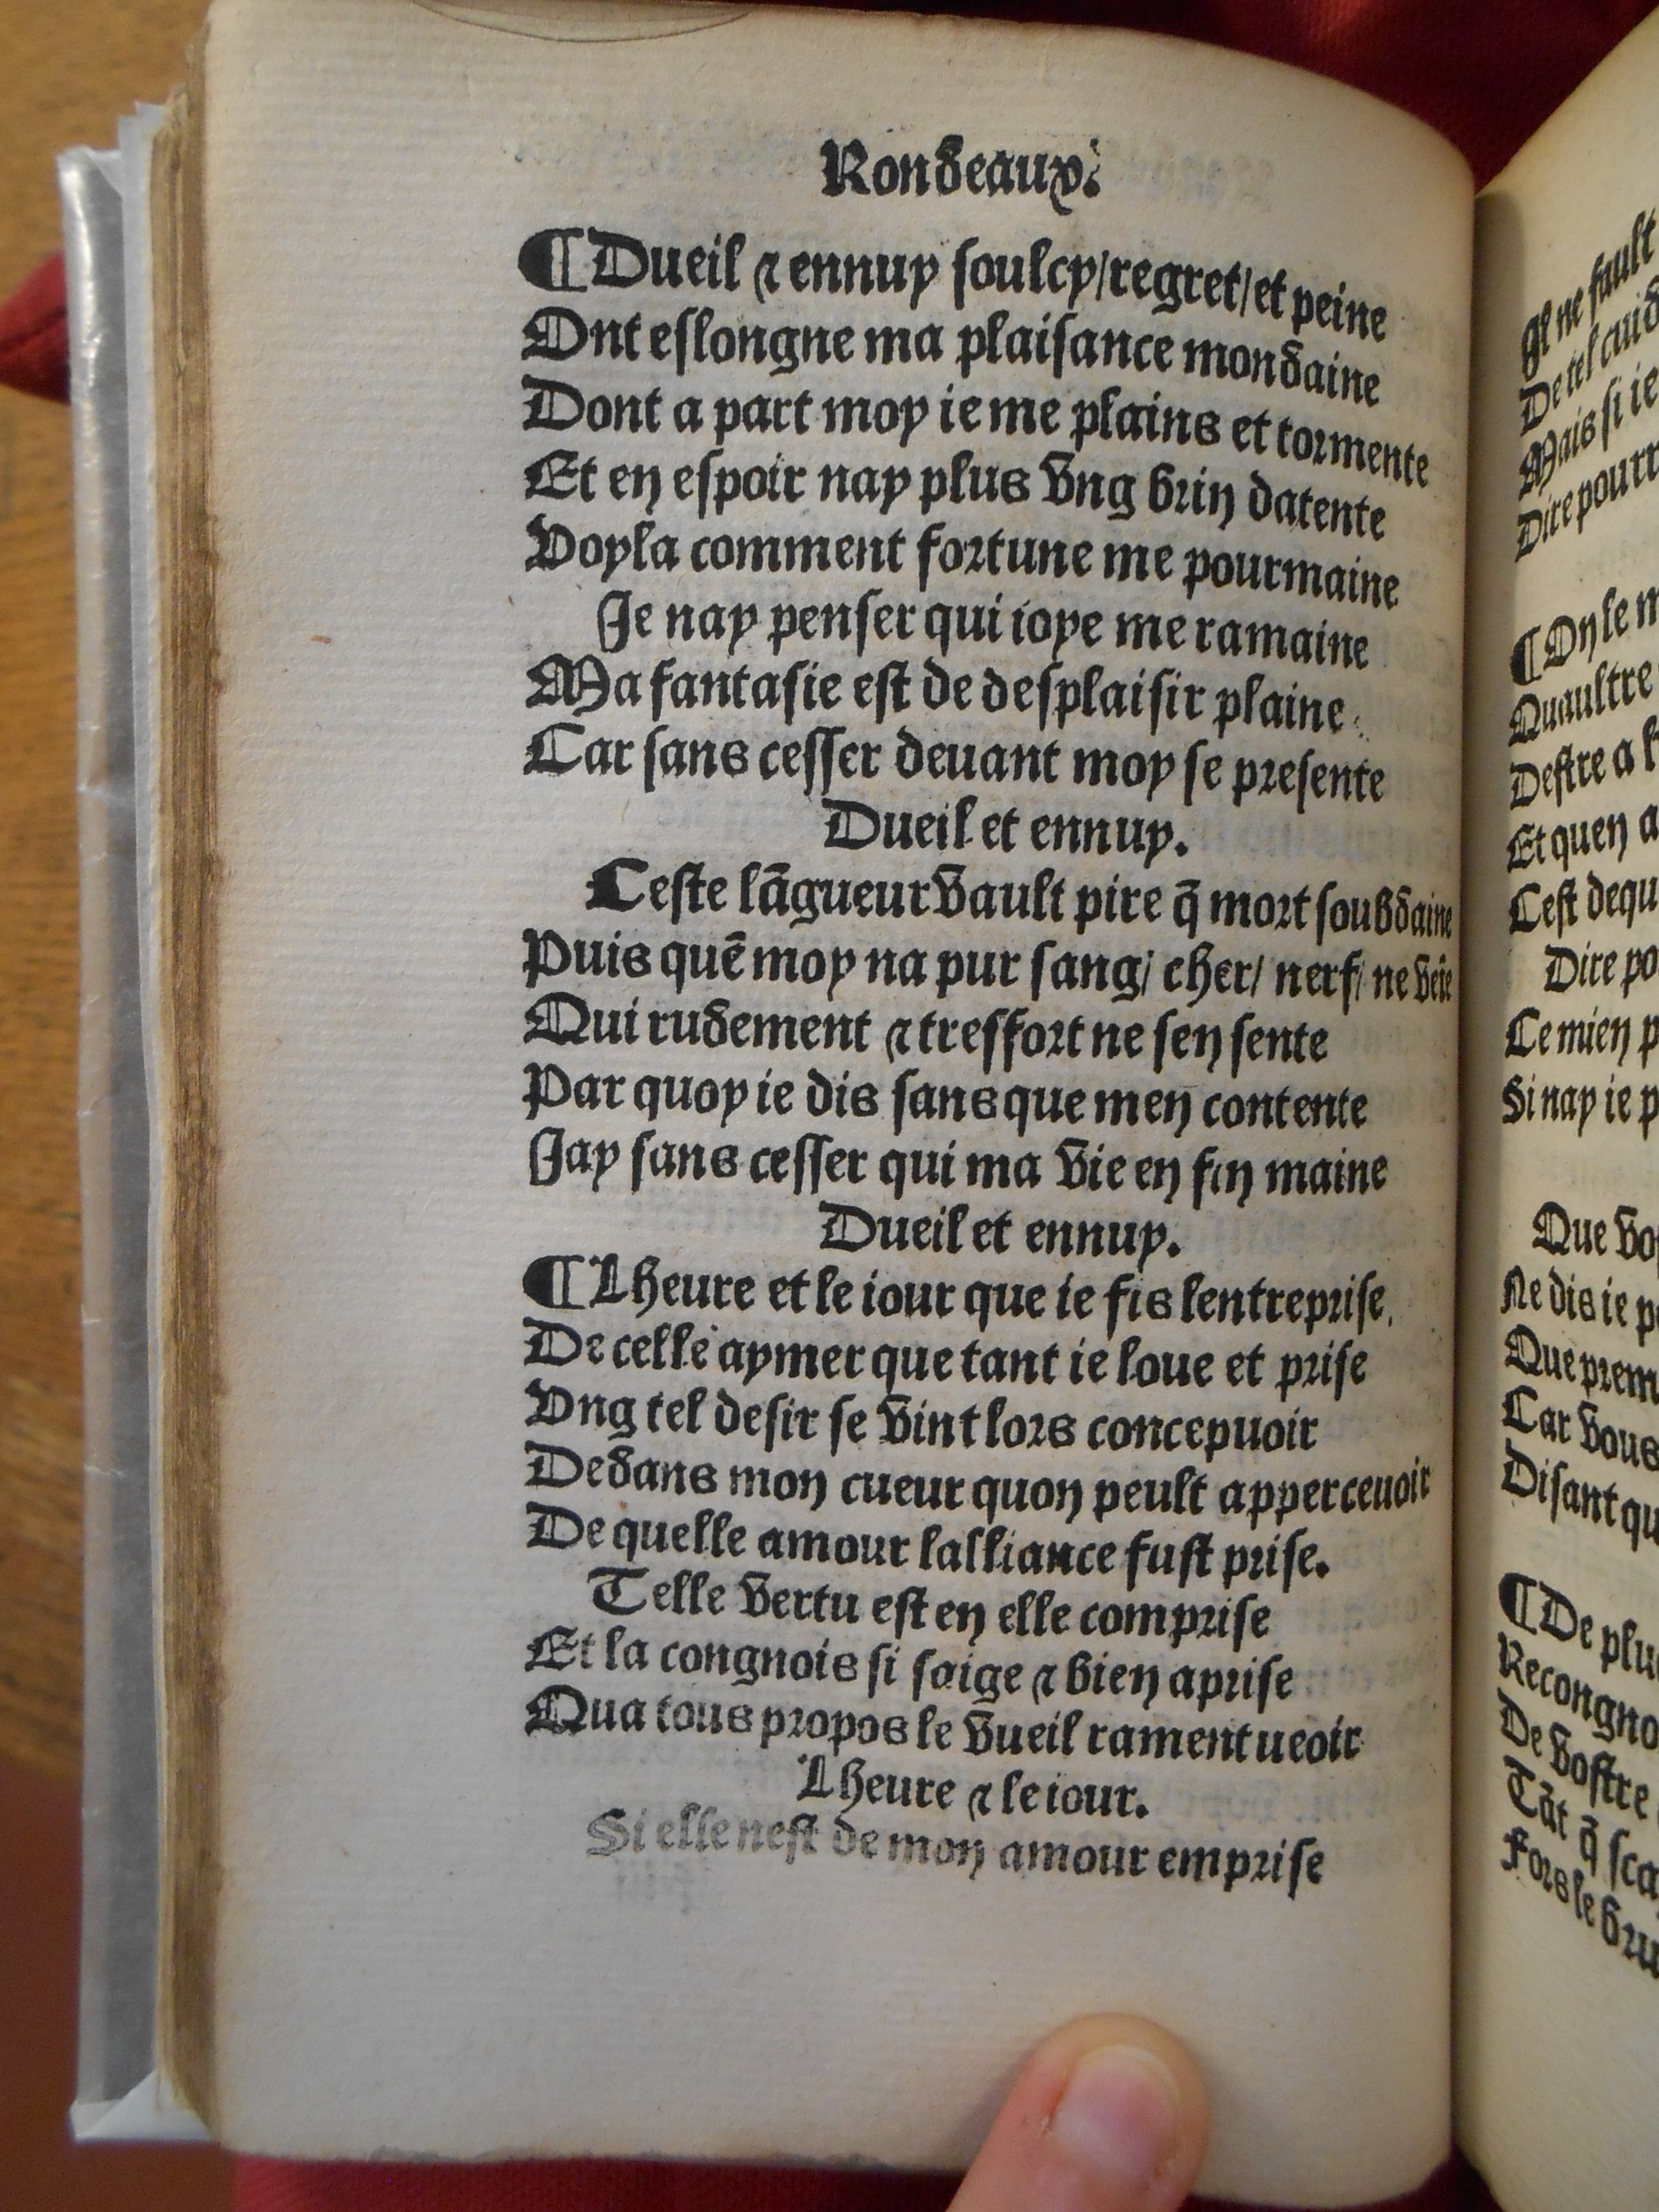 Rondeaux.
¶ Dueil ⁊ ennuy soulcy/regret/et peine
Ont eslongne ma plaisance mondaine
Dont a part moy ie me plains et tormente
Et en espoir nay plus vng brin datente
Voyla comment fortune me pourmaine
Je nay penser qui ioye me ramaine
Ma fantasie est de desplaisir plaine
Car sans cesser deuant moy se presente
Dueil et ennuy.
Ceste lãgueur vault pire q̃ mort soubdaine
Puis quẽ moy na pur sang/ cher/ nerf/ ne veîe
Qui rudement ⁊ tresfort ne sen sente
Par quoy ie dis sans que men contente
Jay sans cesser qui ma vie en fin maine
Dueil et ennuy.
¶ Lheure et le iour que ie fis lentreprise.
De celle aymer que tant ie loue et prise
Vng tel desir se vint lors concepuoir
Dedans mon cueur quon peult apperceuoir
De quelle amour lalliance fust prise.
Telle vertu est en elle comprise
Et la congnois si saige ⁊ bien aprise
Qua tous propos le vueil ramentueoir
Lheure ⁊ le iour.
Si elle nest de mon amour emprise
Il ne fault
De tel
Mais si ie
Dire pourr
¶ On le m
Quaultre
Destre a
Et quen a
Cest dequ
Dire po
Ce mien p
Si nay ie p
Que vo
Ne dis ie p
Que prem
Car vous
Disant qu
¶ De plu
Recongno
De vostre
Tãt q̃ sca
Fors le bru